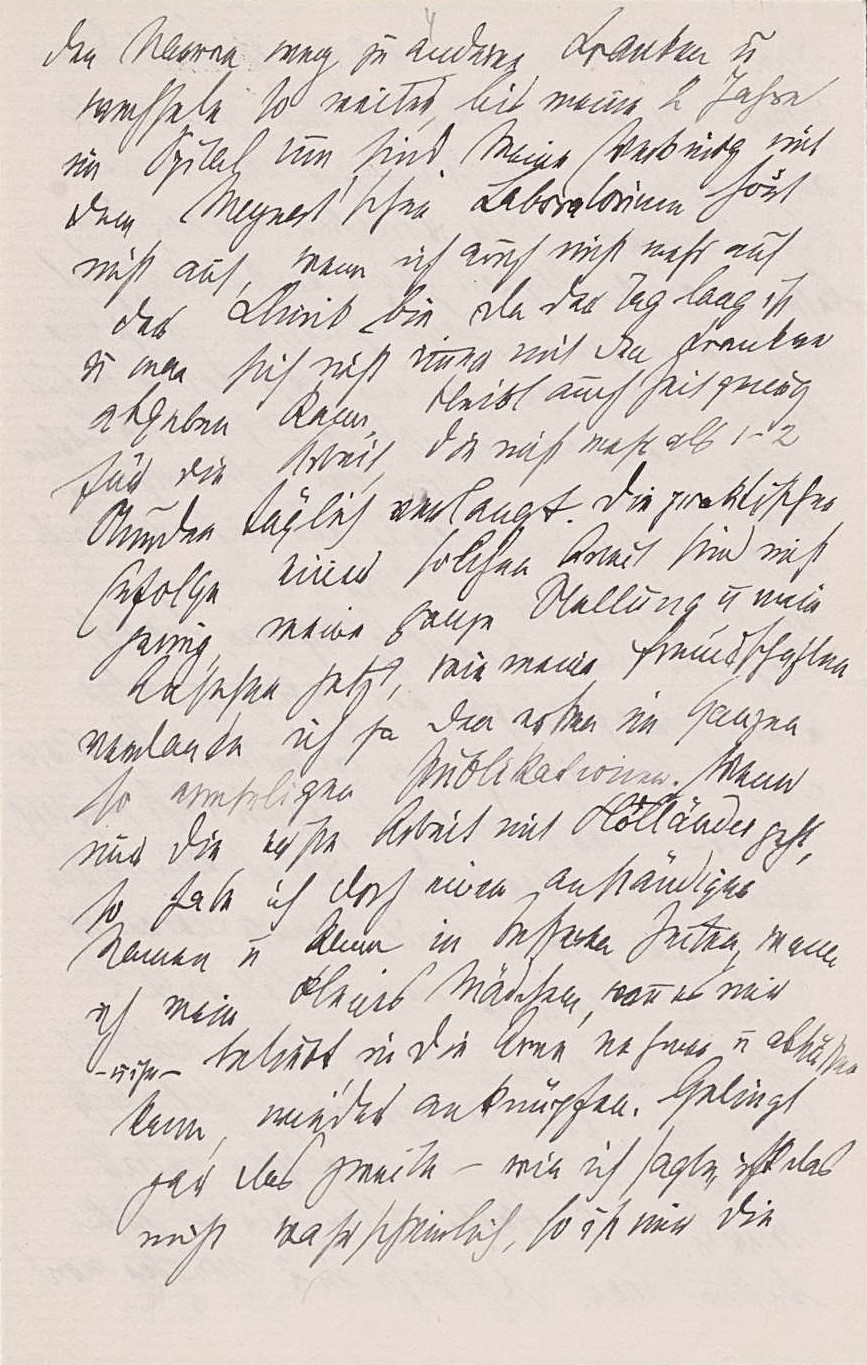 den Nerven weg zu anderen Kranken u
wechsele so weiter, bis meine 2 Jahre
im Spital um sind. Meine Verbindg mit
dem Meynert'schen Laboratorium hört
nicht auf, wenn ich auch nicht mehr auf
der Klinik bin, da der Tag lang ist
u man sich nicht immer mit den Kranken
abgeben kann, bleibt auch Zeit genug
für die Arbeit, die nicht mehr als 1-2
Stunden täglich verlangt. Die praktischen
Erfolge einer solchen Arbeit sind nicht
gering, meine ganze Stellung u mein
Ansehen jetzt, wie meine Freundschaften
verdanke ich ja den ersten im Ganzen
so Publikationen. Wenn
nur die erste Arbeit mit Holländer geht,
so habe ich doch einen anständigen
Namen u kann in besseren Zeiten, wenn
ich mein kleines Mädchen, wann es mir
beliebt in die Arme nehmen u abküssen
kann, wieder anknüpfen. Gelingt
gar das zweite – wie ich sagte, ist das
nicht wahrscheinlich, so ist mir die